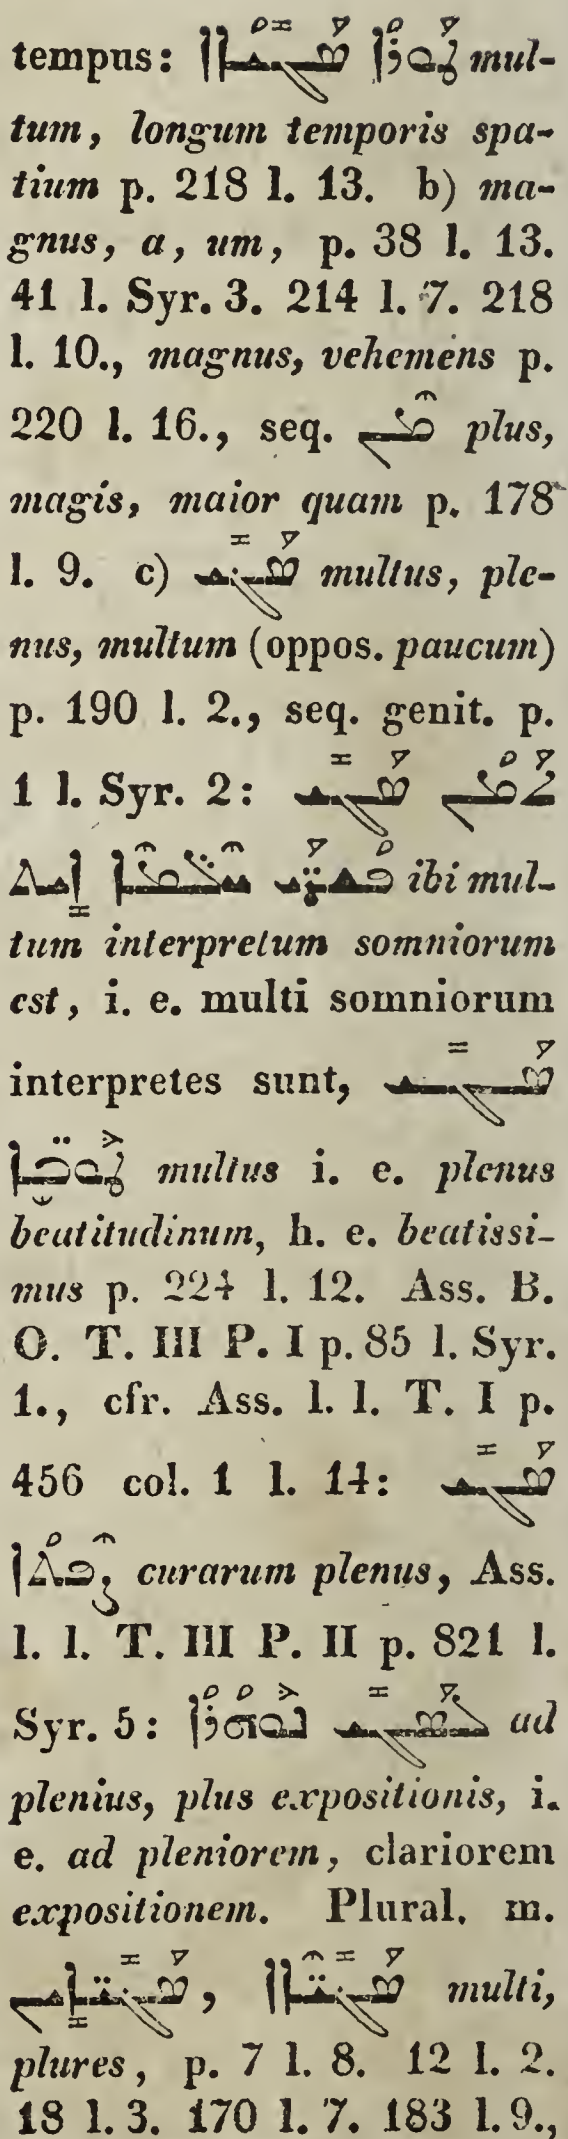 tempus: ܛܰܘܪܳܐ ܣܰܓܺܝܐܳܐ mul-
tum, longum temporis spa-
tium p. 218 l. 13. b) ma-
gnus, a, um, p. 38 l. 13.
41 l. Syr. 3. 214 l. 7. 218
l. 10., magnus, vehemens p.
220 l. 16., seq. ܡܶܢ plus,
magis, maior quam p. 178
l. 9. c) ܣܰܓܺܝ multus, ple-
nus, multum (oppos. paucum)
p. 190 l. 2., seq. genit. p.
1 l. Syr. 2: ܬܰܡܳܢ ܣܰܓܺܝ
ܦܳܫ̈ܩܰܝ ܚܶܠܡ̈ܶܐ ܐܺܝܬ ibi mul-
tum interpretum somniorum
est, i. e. multi somniorum
interpretes sunt, ܣܰܓܺܝ
ܛܽܘܒ̈ܐ multus i. e. plenus
beatitudinum, h. e. beatissi-
mus p. 224 l. 12. Ass. B.
O. T. III P. I p. 85 l. Syr.
1., cfr. Ass. l. l. T. I p.
456 col. 1 l. 14: ܣܰܓܺܝ
ܨܶܦܬܳܐ curarum plenus, Ass.
l. l. T. III P. II p. 821 l.
Syr. 5: ܠܣܰܓܺܝ ܢܽܘܗܳܪܳܐ ad
plenius, plus expositionis, i.
e. ad pleniorem, clariorem
expositionem. Plural. m.
ܣܰܓܺܝ̈ܐܺܝܢ, ܣܰܓܺܝ̈ܶܐܐ multi,
plures, p. 7 l. 8. 12 l. 2.
18 l. 3. 170 l. 7. 183 l. 9.,